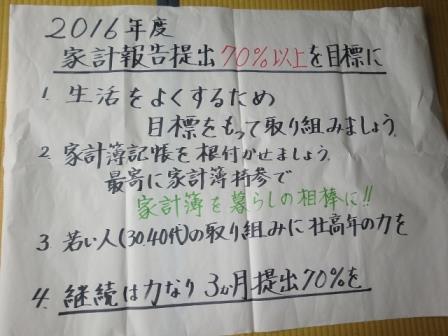 2016年度
家計報告提出70%以上を目標に
1. 生活をよくするため
目標をもって取り組みましょう.
2. 家計簿記帳を根付かせましょう.
最寄に家計簿持参で
家計簿を暮らしの相棒に!!
3. 若い人(30.40代)の取り組みに壮高年の力を
4. 継続は力なり 3か月提出70%を